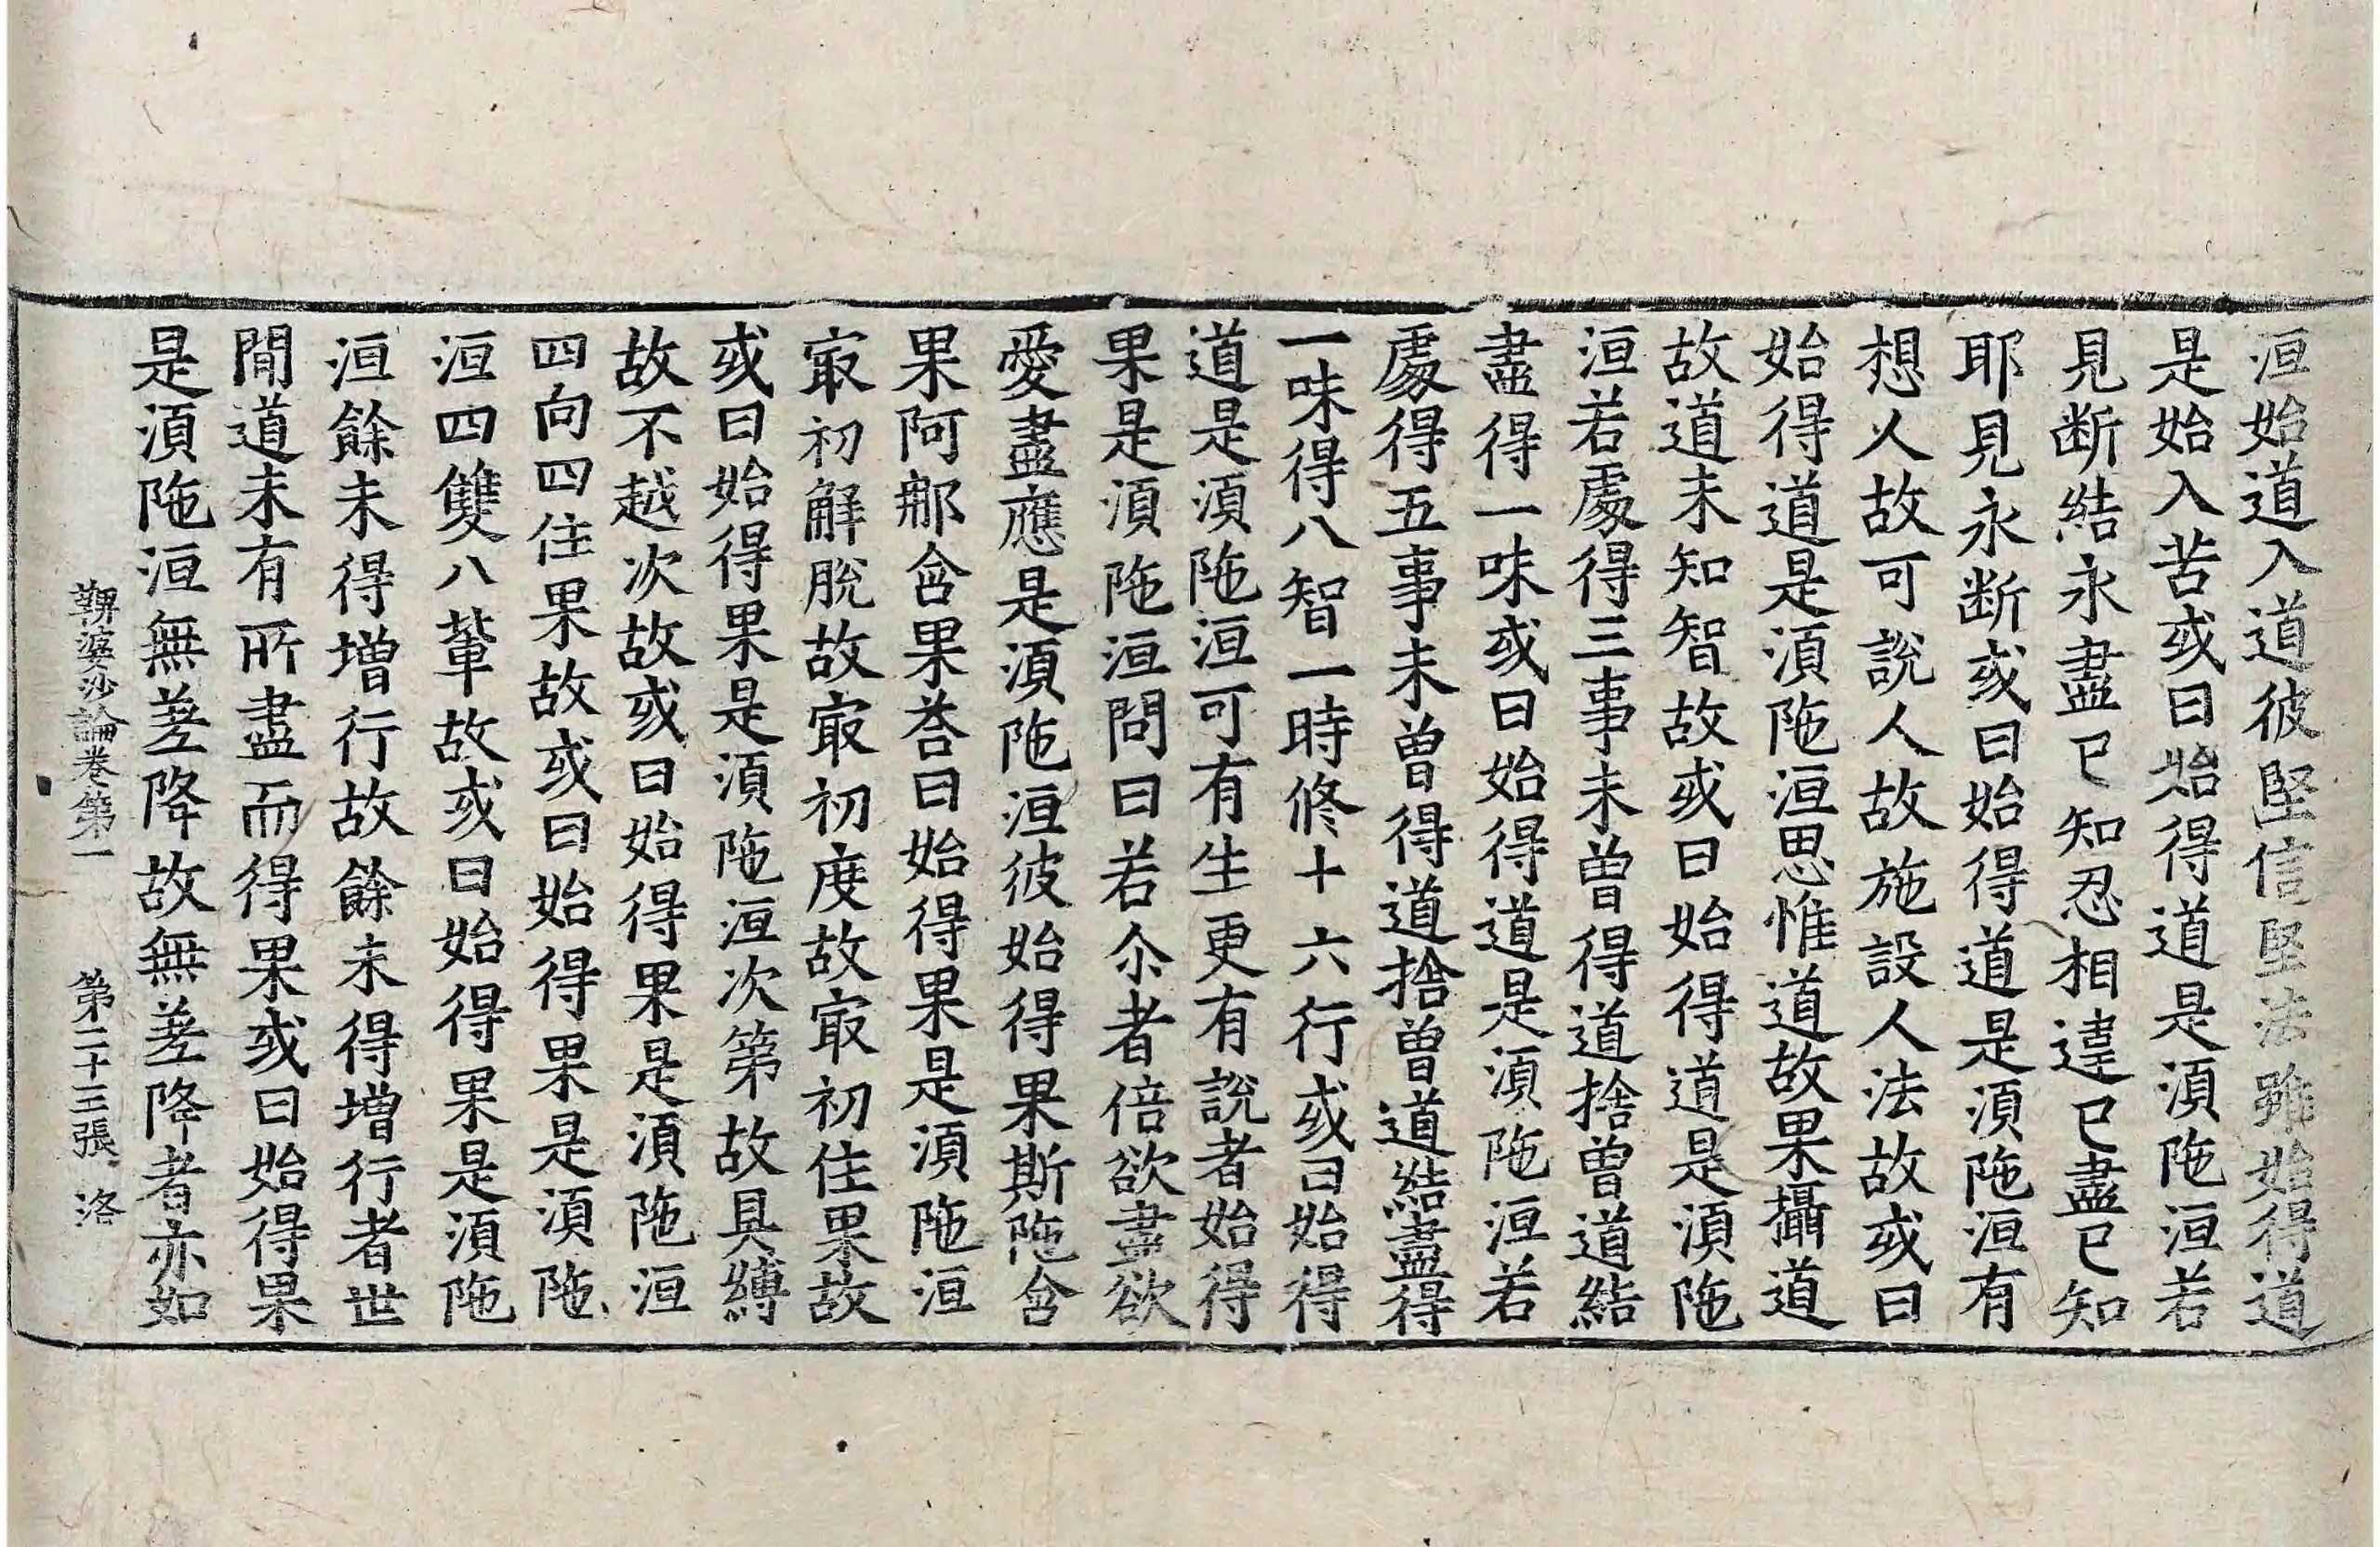 洹始道入道彼堅信堅法雖始得道
是始入苦或曰始得道是湏陁洹若
見断結永盡已知忍相違已盡已知
耶見永断或曰始得道是湏陁洹有
想人故可說人故施設人法故或曰
始得道是湏陁洹思惟道故果攝道
故道未知智故或曰始得道是湏陁
洹若處得三事未曾得道捨曾道結
盡得一味或曰始得道是湏陁洹若
處得五事未曾得道捨曾道結盡得
一味得八智一時修十六行或曰始得
道是湏陁洹可有生更有說者始得
果是湏陁洹問曰若尒者倍欲盡欲
愛盡應是湏陁洹彼始得果斯陁含
果阿那含果荅曰始得果是湏陁洹
㝡初解脫故㝡初度故㝡初住果故
或曰始得果是湏陁洹次第故具縛
故不越次故或曰始得果是湏陁洹
四向四住果故或曰始得果是湏陁
洹四雙八軰故或曰始得果是湏陁
洹餘未得增行故餘未得增行者世
間道未有所盡而得果或曰始得果
是湏陁洹無差降故無差降者亦如
鞞婆沙論卷第一　第二十三張　洛